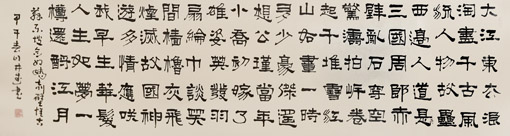 大江東去浪
淘盡千古風
流人物故壘
西邊人道是
三國周郎赤
壁亂石穿空
驚濤拍岸卷
起千堆雪江
山如畫一時
多少豪傑遙
想公瑾當年
小喬初嫁了
雄姿英發羽
扇綸巾談笑
間檣櫓灰飛
煙滅故國神
遊多情應笑
我早生華髮
人生如夢一
樽還酹江月
蘇東坡念奴嬌赤壁懷古
甲午春月書